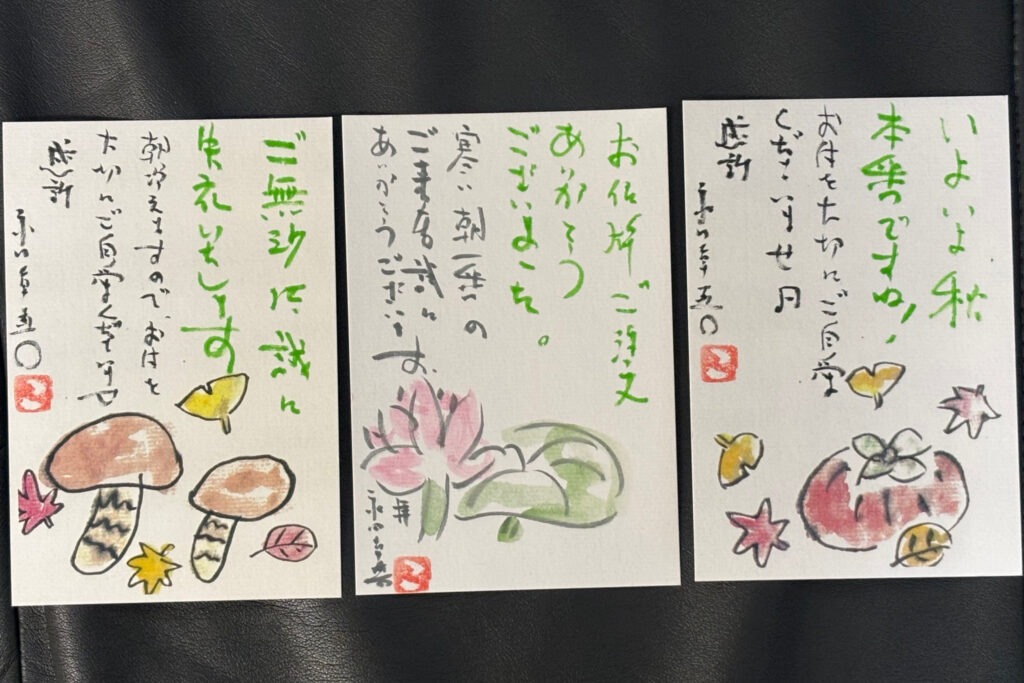 ご無沙汰誠に
失礼いたします
朝冷えますので、お体を
大切にご自愛くださいませ
感謝
ご注文
ありがとう
ございました。
寒い朝一番の
ご来店誠に
ありがとうございます。
拝
いよいよ秋
本番ですね!
お体を大切にご自愛
くださいませ
感謝